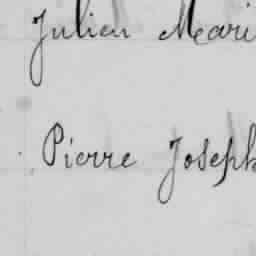 Julien Mari
Pierre Joseph